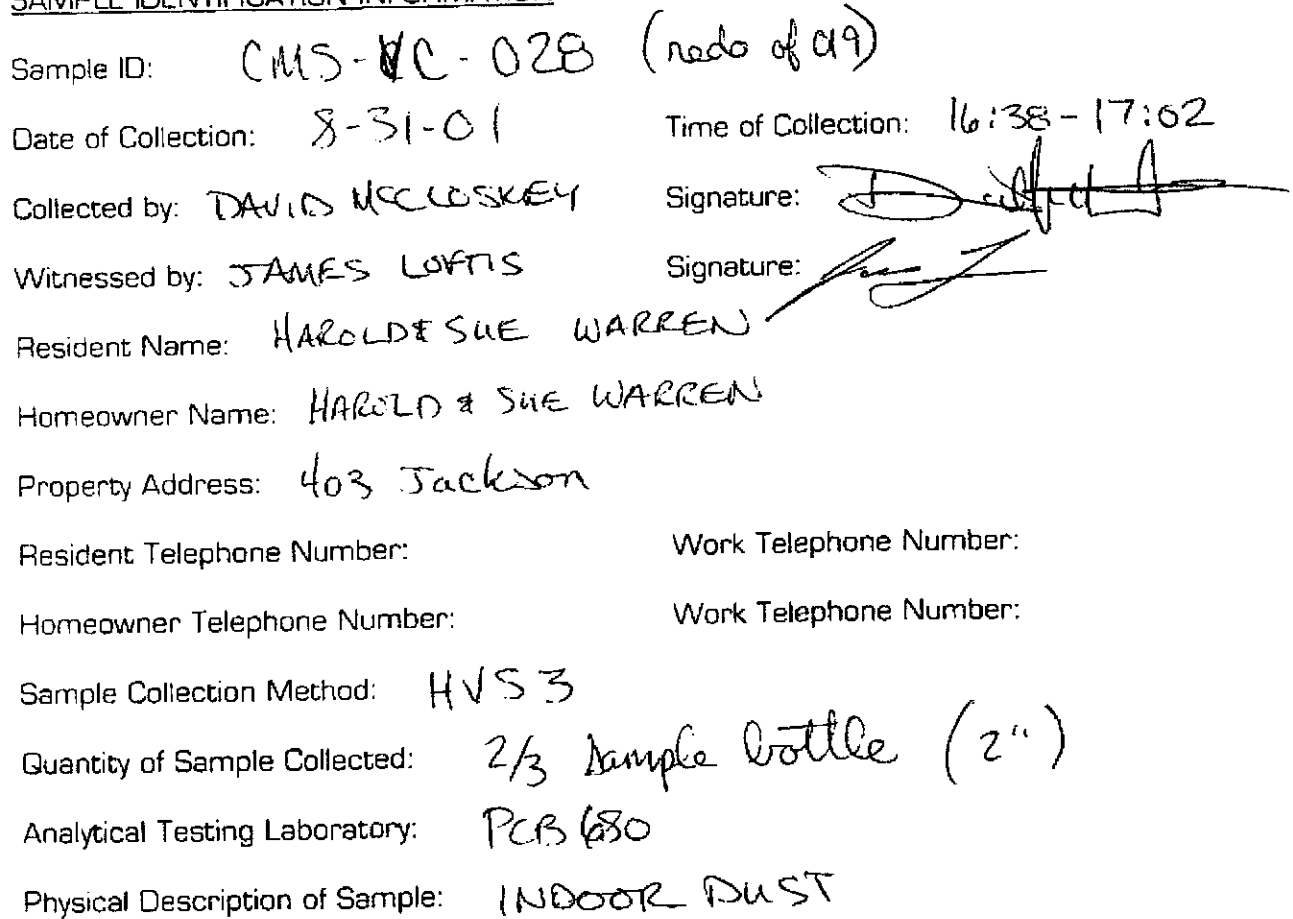 SAMPLE IDENTIFICATION INFORMATION
Sample ID: CMS-VC-028 (redo of 019)
Date of Collection: 8-31-01 Time of Collection: 16:38-17:02
Collected by: DAVID MCCLOSKEY Signature:
Witnessed by: JAMES LOFTIS Signature:
Resident Name: HAROLD & SUE WARREN
Homeowner Name: HAROLD & SUE WARREN
Property Address: 403 Jackson
Resident Telephone Number: Work Telephone Number:
Homeowner Telephone Number: Work Telephone Number:
Sample Collection Method: HVS3
Quantity of Sample Collected: 2/3 Sample bottle (2")
Analytical Testing Laboratory: PCB 680
Physical Description of Sample: INDOOR DUST